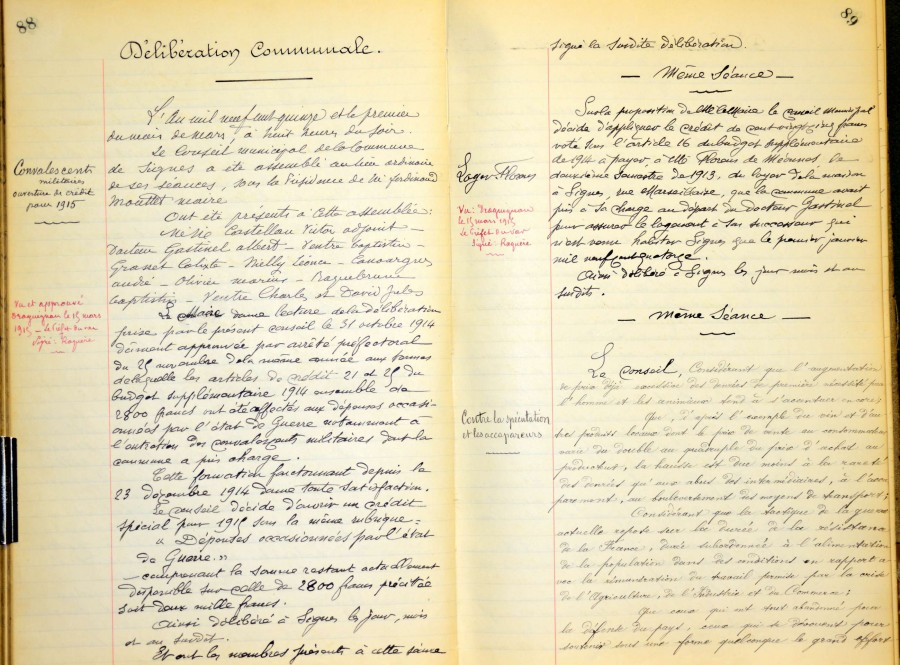 88
Délibération Communale.
L'An mil neuf cent quinze et le premier
du mois de mars, à huit heures du soir.
Le Conseil municipal de la Commune
de Signes a été assemblé au lieu ordinaire
de ses séances, sous la Présidence de Mr Ferdinand
Mouttet maire
Ont été présents à cette assemblée:
Castellan Victor adjoint -
Docteur Gastinel albert - Ventre baptistin -
Granet Calixte - Léonce -
andré - Olivier marius -
baptistin - Ventre Charles et David Jules
Le Maire donne lecture de la délibération
prise par le présent conseil le 31 octobre 1914
dûment approuvée par arrêté préfectoral
du 25 novembre de la même année aux termes
de laquelle les articles de crédit 21 et 25 du
budget supplémentaire 1914 ensemble de
2800 francs ont été affectés aux dépenses occasi-
onnées par l'état de Guerre notamment à
l'entretien des convalescents militaires dont la
commune a pris charge.
Cette formation fonctionnant depuis le
23 décembre 1914 donne toute satisfaction.
Le conseil décide d'ouvrir un crédit
spécial pour 1915 sous la même rubrique =
" Dépenses occasionnées par l'état
de Guerre. "
comprenant la somme restant actuellement
disponible sur celle de 2800 francs précitée
soit deux mille francs.
Ainsi délibéré à Signes les jour, mois
et an susdit.
Et ont les membres présents à cette séance
Convalescents
militaires
ouverture de crédit
pour 1915
Vu et approuvé
Draguignan le 15 mars
1915 - Le Préfet du Var
Signé: Raquire
89
signé la susdite délibération.
- Même Séance -
Sur la proposition de Mr le Maire le conseil municipal
décide d'appliquer le crédit de cent francs
voté sur l'article 16 du budget supplémentaire
de 1914 à payer, à Mr Florens de Méounes le
deuxième Semestre de 1913, du loyer de la maison
à Signes, rue Marseillaise, que la commune avait
pris à sa charge au départ du Docteur Gastinel
pour assurer le logement à son successeur qui
n'est venu habiter Signes que le premier janvier
mil neuf cent quatorze.
Ainsi délibéré à Signes les jour mois et an
susdits.
Loyer Florens
Vu: Draguignan
le 15 mars 1915
Le Préfet du Var
Signé Raquire
- Même Séance -
Le Conseil, Considérant que l'augmentation
de prix déjà excessive des denrées de première nécessité pour
l'homme et les animaux tend à s'accentuer encore;
Que, d'après l'exemple du vin et d'au-
tres produits locaux dont le prix de vente en consommation
varie du double au quadruple du prix d'achat au
producteur, la hausse est due moins à la rareté
des denrées qu'aux abus des intermédiaires, à l'acca-
parement, au bouleversement des moyens de transport;
Considérant que la tactique de la guerre
actuelle repose sur la durée de la résistance
de la France, durée subordonnée à l'alimentation
de la population dans des conditions en rapport a-
vec la rémunération du travail permise par la crise
de l'Agriculture, de l'Industrie et du Commerce;
Que ceux qui ont tout abandonné pour
la défense du pays, ceux qui se dévouent pour
soutenir sous une forme quelconque le grand effort
Contre la spéculation
et les accapareurs